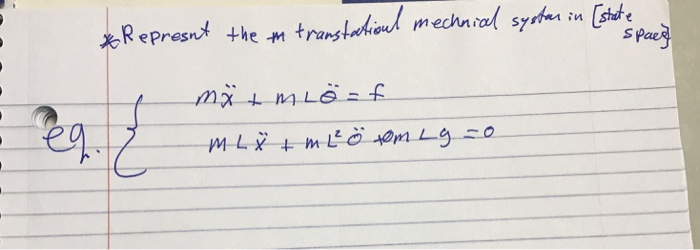 *Represnt the m translational mechnical system in [state
space]
mẍ + mLθ̈ = f
eq. {
mLẍ + mL²θ̈ + θmLg = 0